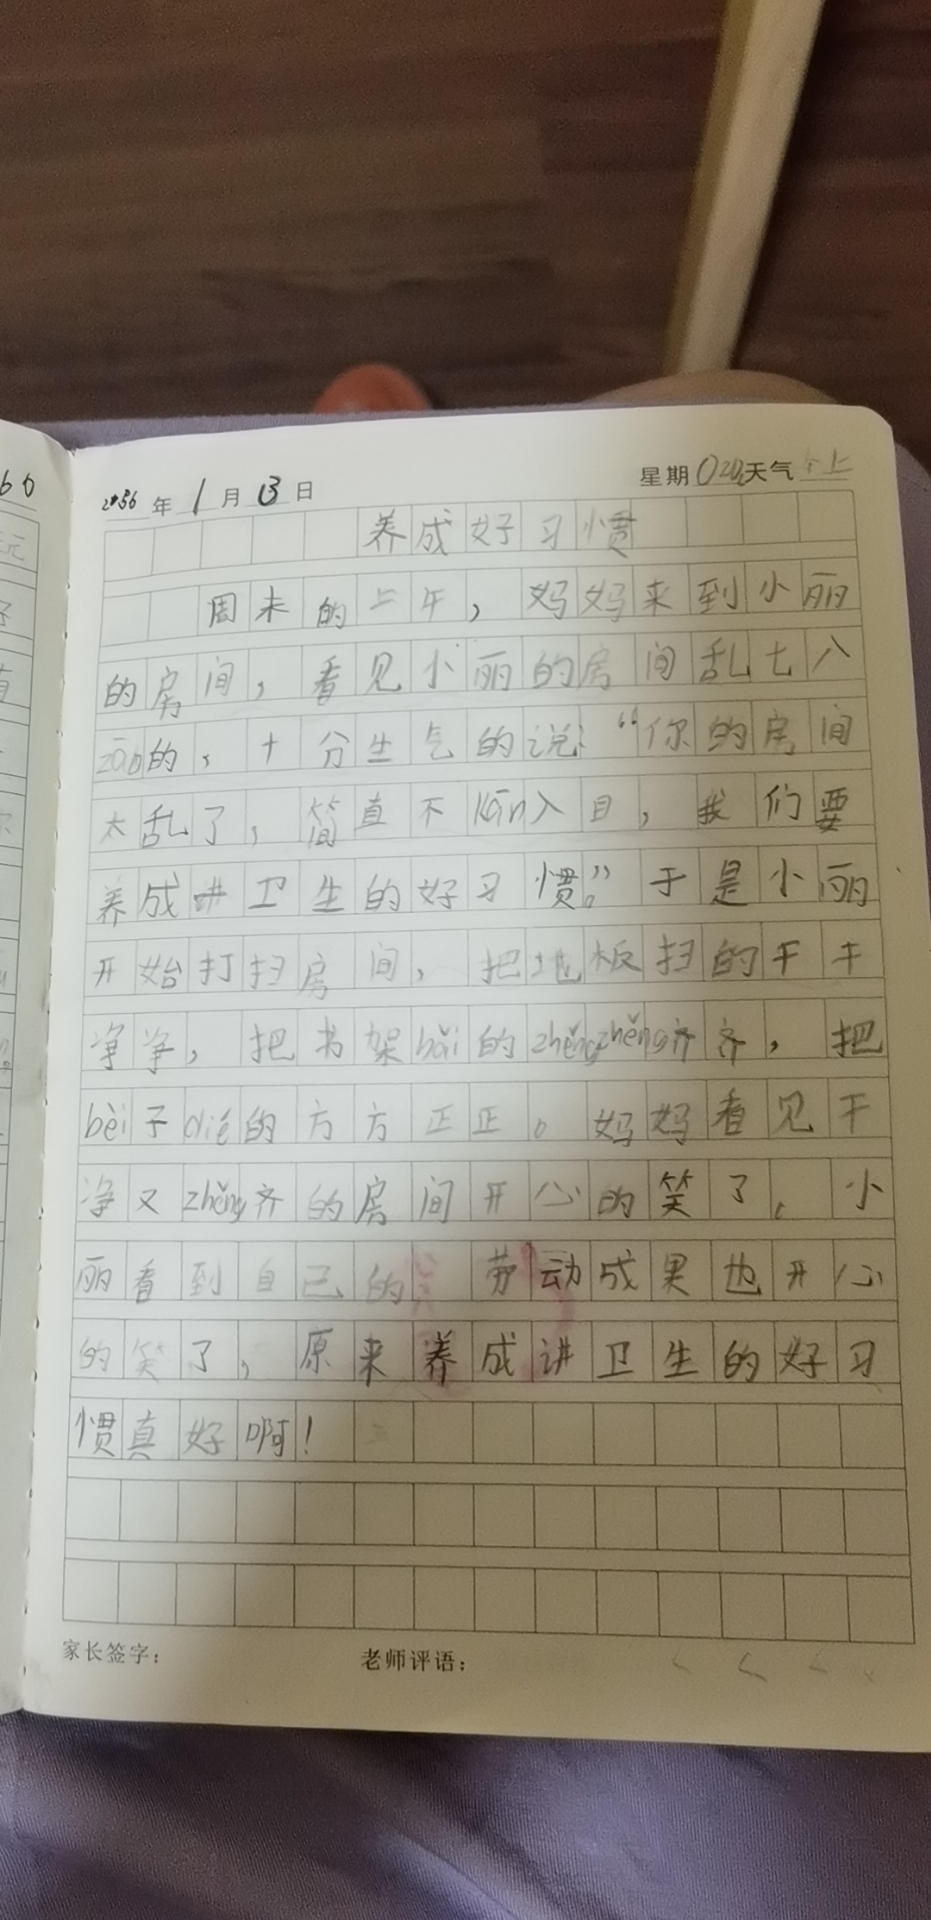 年 1月13日 星期 天气
养成好习惯
周末的上午，妈妈来到小丽
的房间，看见小丽的房间乱七八
zāo的，十分生气的说：“你的房间
太乱了，简直不kān入目，我们要
养成讲卫生的好习惯。”于是小丽
开始打扫房间，把地板扫的干干
净净，把书架bǎi的zhěngzhěng齐齐，把
bèi子dié的方方正正。妈妈看见干
净又zhěng齐的房间开心的笑了，小
丽看到自己的劳动成果也开心
的笑了，原来养成讲卫生的好习
惯真好啊！
家长签字： 老师评语：